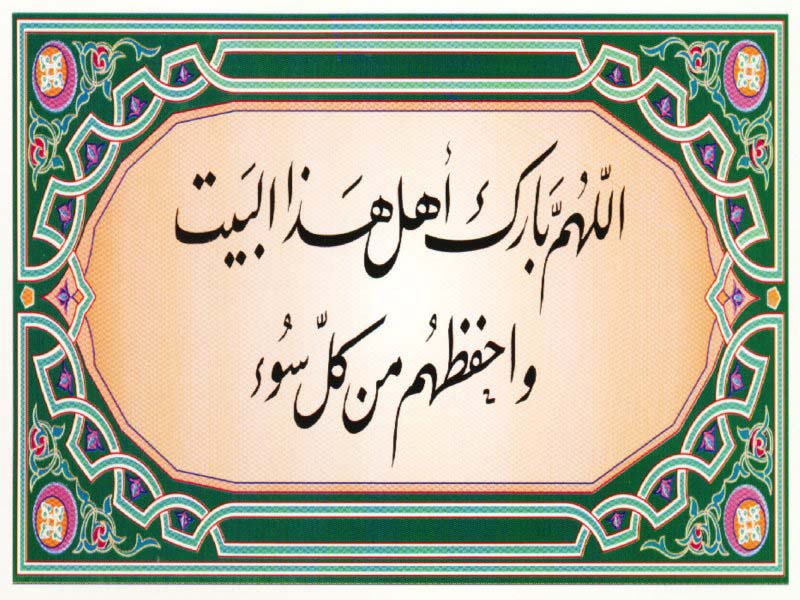 اللّهُمَّ بَارك أهل هَذا البَيت
واحفظهُم من كلّ سُوء